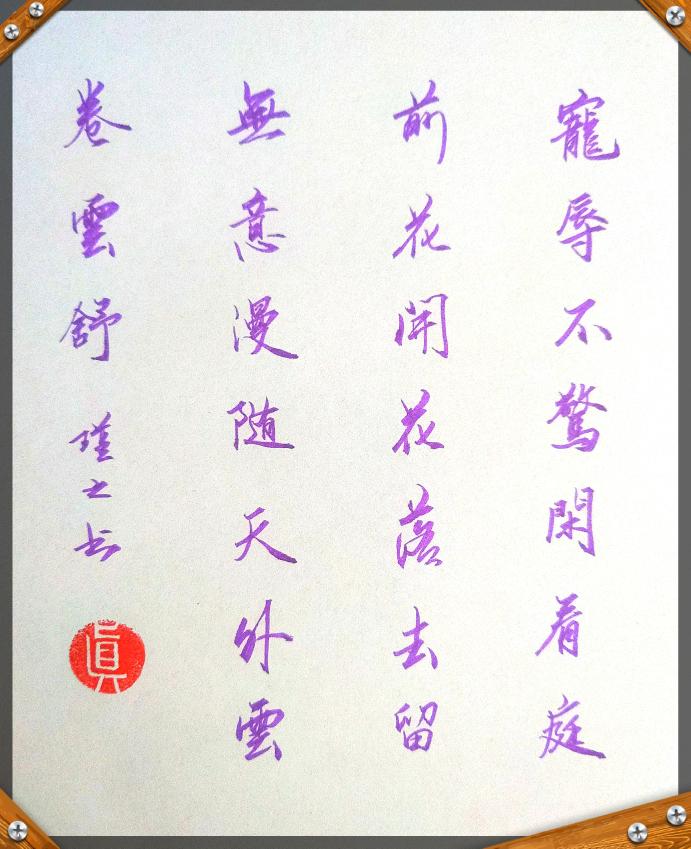 寵辱不驚閑着庭
前花開花落去留
無意漫随天外雲
卷雲舒 瑾之书
眞